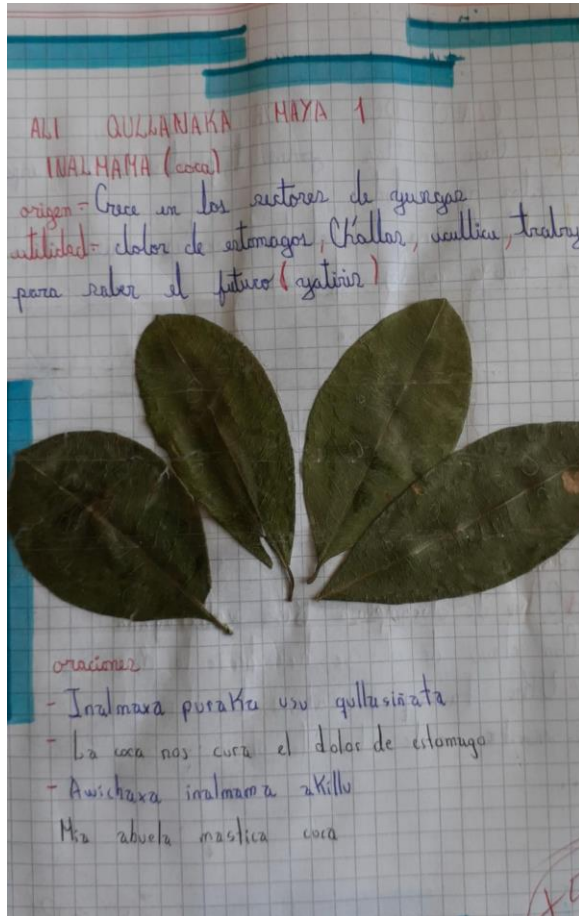 ALI QULLANAKA MAYA 1
INALMAMA (coca)
origen = Crece en los sectores de yungas
utilidad = dolor de estomagos, Challar, acullicu,
para saber el futuro (yatiris)
oraciones
- Inalmaxa puraka usu qullasiñata
- La coca nos cura el dolor de estomago
- Awichaxa inalmama akilli
Mia abuela mastica coca